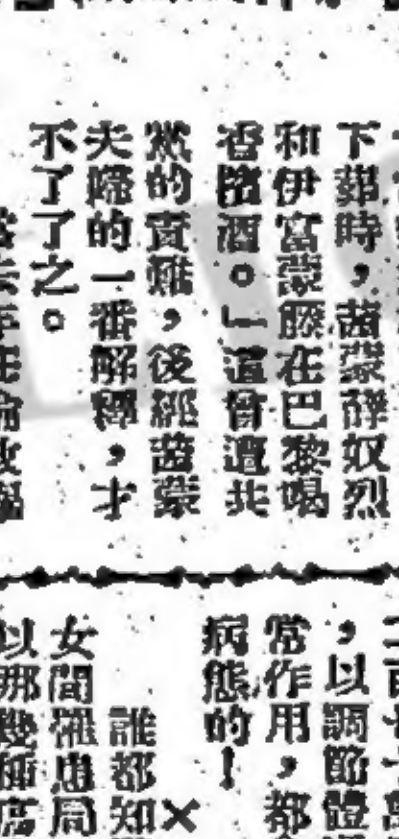 下葬時，茜蒙薛奴烈
和伊富蒙滕在巴黎喝
香檳酒。」這曾遭共
黨的責難，後經茜蒙
夫婦的一番解釋，才
不了了之。
，以調節體
常作用，都
病態的！
誰都知
女間罹患局
以那幾種